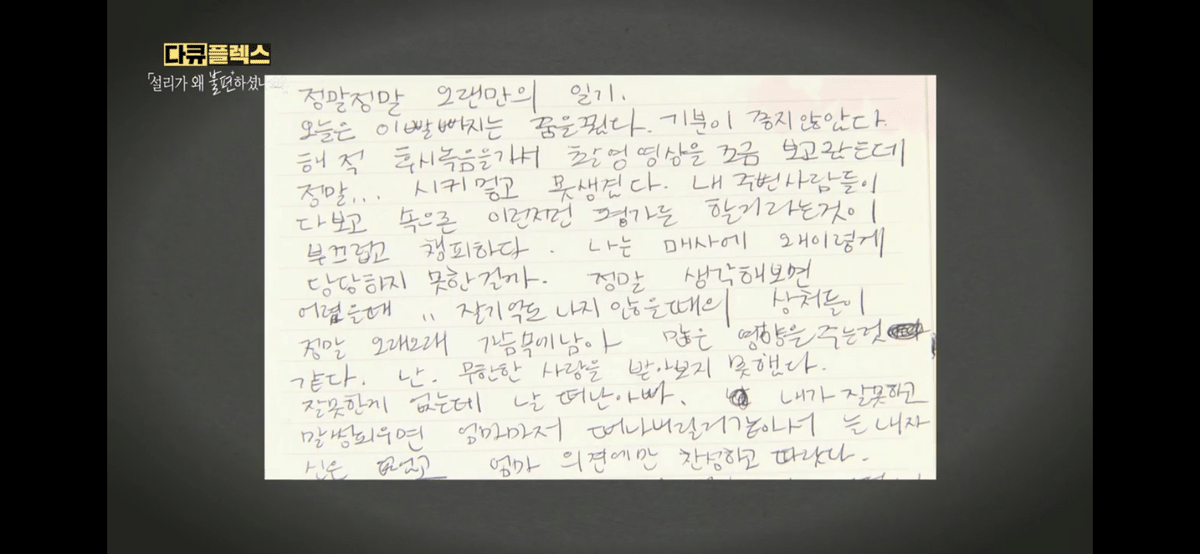 다큐플렉스
「설리가 왜 불편하셨나요?」
정말정말 오랜만의 일기.
오늘은 이빨빠지는 꿈을꿨다. 기분이 좋지않았다.
해적 후시녹음을가서 촬영영상을 조금 보고왔는데
정말... 시커멓고 못생겼다. 내 주변사람들이
다보고 속으론 이런저런 평가를 할거라는것이
부끄럽고 챙피하다. 나는 매사에 왜이렇게
당당하지 못한걸까. 정말 생각해보면
어렸을때 .. 잘기억도 나지 않을때의 상처들이
정말 오래오래 가슴속에남아 많은 영향을주는것
같다. 난. 무한한 사랑을 받아보지 못했다.
잘못한게 없는데 날 떠난아빠. 내가 잘못하고
말썽피우면 엄마마저 떠나버릴거같아서 늘 내자
신은 없었고 엄마 의견에만 찬성하고 따랐다.